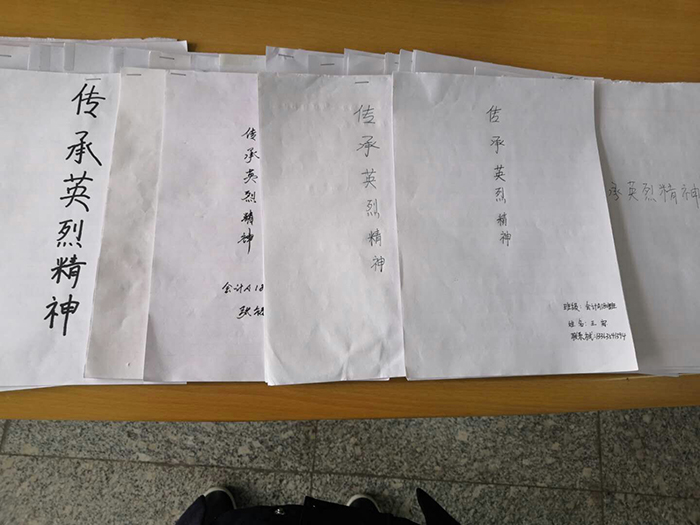 传承英烈精神
传承英烈精神
会计A18
张
传承英烈精神
传承英烈精神
班级:会计
姓名:王
联系
承英烈精神